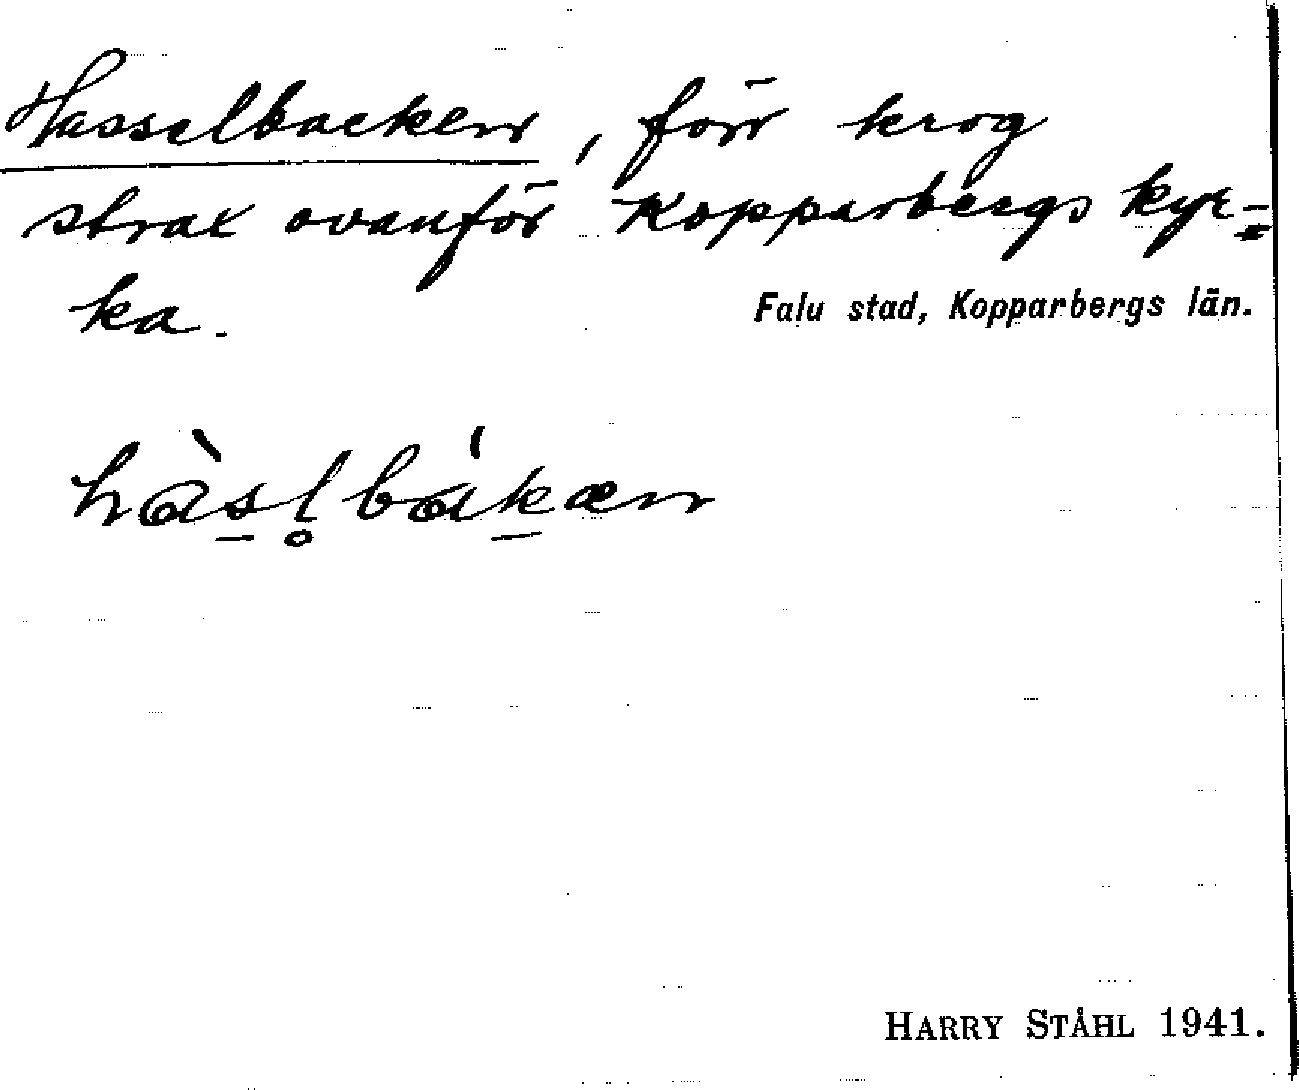 Hasselbacken, förr krog
strax ovanför Kopparbergs kyr-
ka.
Falu stad, Kopparbergs län.
hàsl̥bákæn
HARRY STÅHL 1941.